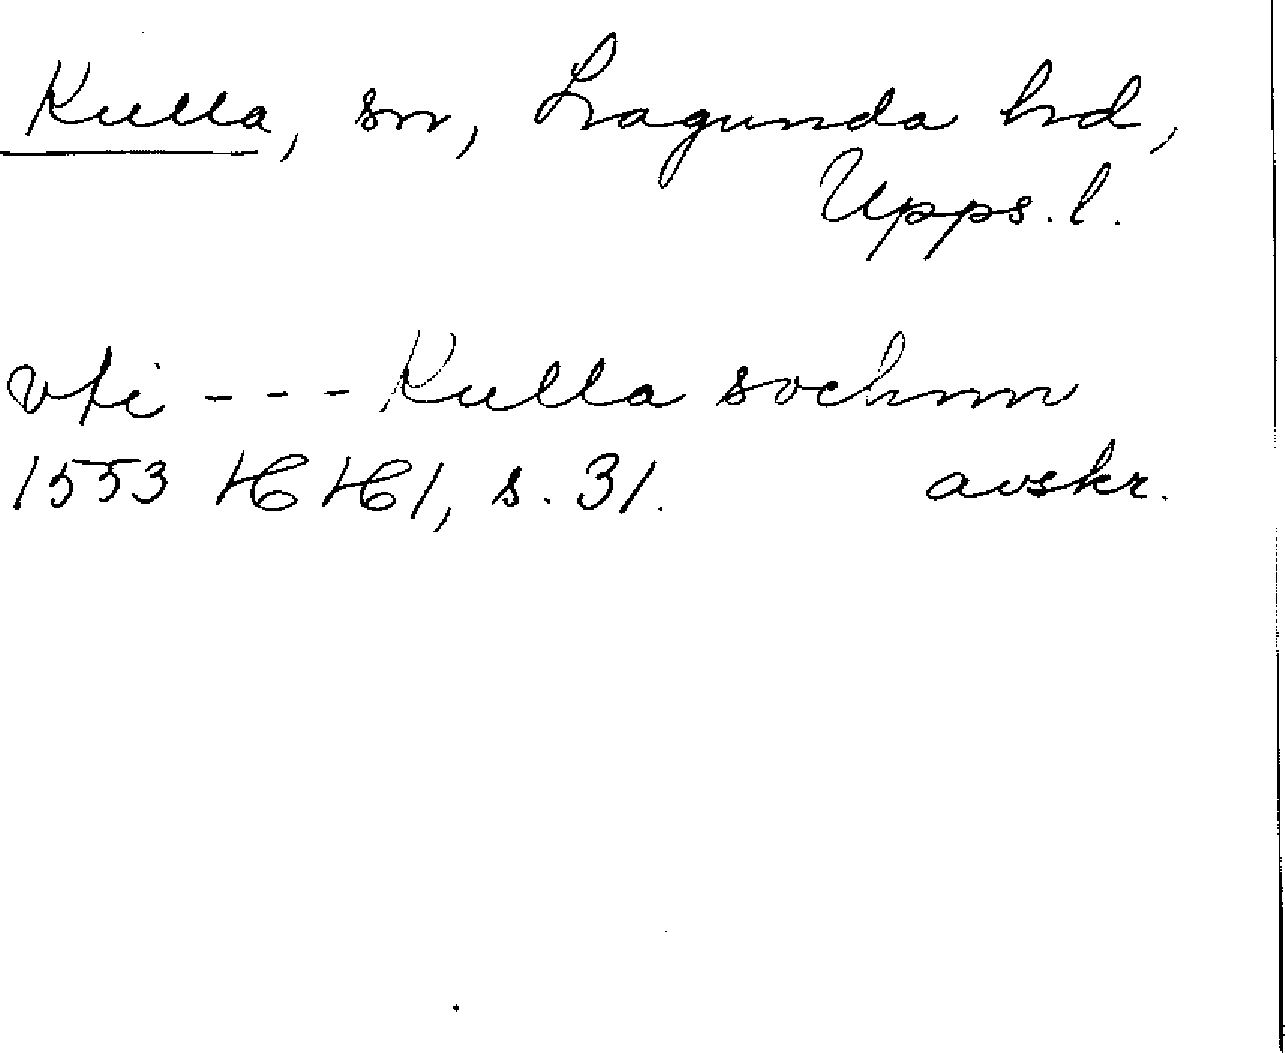 Kulla, sn, Lagunda hd,
Upps. l.
vti - - - Kulla sochnn
1553 HH 1, s. 31. avskr.